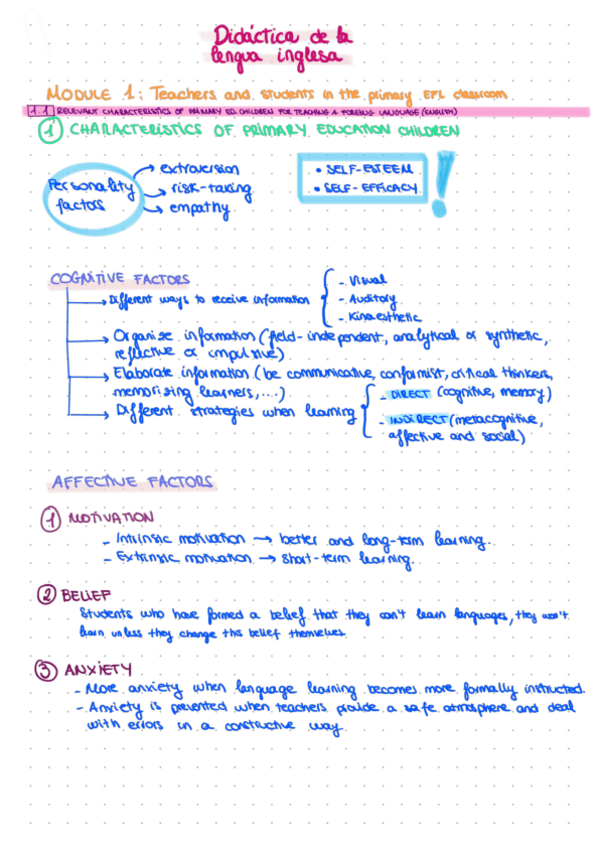 Didáctica de la
lengua inglesa
MODULE 1: Teachers and students in the primary EFL classroom
1.1 RELEVANT CHARACTERISTICS OF PRIMARY ED. CHILDREN FOR TEACHING A FOREIGN LANGUAGE (ENGLISH)
1 CHARACTERISTICS OF PRIMARY EDUCATION CHILDREN
Personality factors
→ extraversion
→ risk-taking
→ empathy
• SELF-ESTEEM
• SELF-EFFICACY
!
COGNITIVE FACTORS
→ Different ways to receive information
- Visual
- Auditory
- Kinaesthetic
→ Organise information (field-independent, analytical or synthetic,
reflective or impulsive)
→ Elaborate information (be communicative, conformist, critical thinkers,
memorising learners, ...)
→ Different strategies when learning
- DIRECT (cognitive, memory)
- INDIRECT (metacognitive,
affective and social)
AFFECTIVE FACTORS
1 MOTIVATION
- Intrinsic motivation → better and long-term learning.
- Extrinsic motivation → short-term learning.
2 BELIEF
Students who have formed a belief that they can't learn languages, they won't
learn unless they change this belief themselves
3 ANXIETY
- More anxiety when language learning becomes more formally instructed.
- Anxiety is prevented when teachers provide a safe atmosphere and deal
with errors in a constructive way.